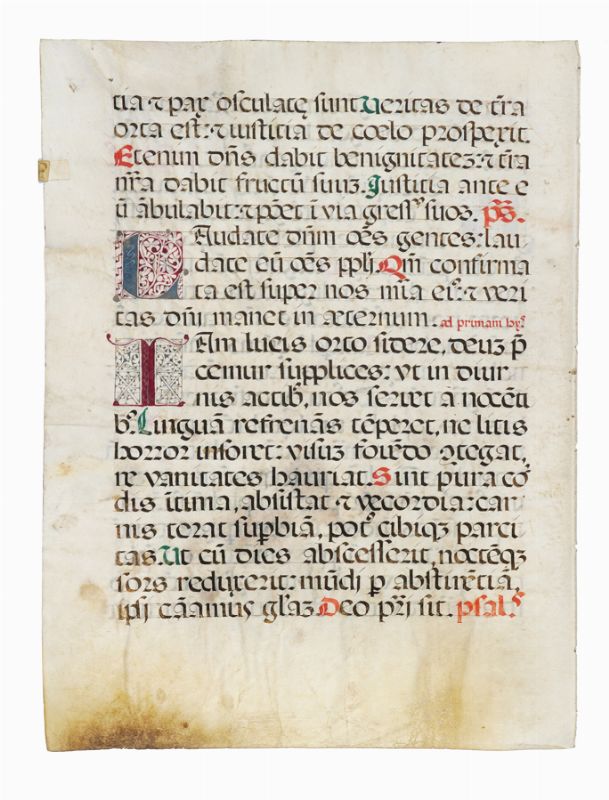 tia ⁊ pax osculatę sunt Ueritas de t̄ra
orta est: ⁊ iustitia de cœlo prospexit
Etenim dn̄s dabit benignitatez: ⁊ t̄ra
nr̄a dabit fructū suuz. Justitia ante e
ū ābulabit: ⁊ pōet ī via gressꝰ suos. ps̄.
LAudate dnm̄ oēs gentes: lau
date eū oēs pplj. Qm̄ confirma
ta est super nos mīa eiꝰ: ⁊ veri
tas dn̄i manet in æternum. ad primam hyꝰ
IAm lucis orto sidere, deuz p̄
cemur supplices: vt in diur
nis actibꝰ, nos seruet a nocēti
bꝰ. Linguā refrenās tēperet, ne litis
horror insonet: visuz fouēdo ꝯtegat,
ne vanitates hauriat. Sint pura cor
dis ītima, absistat ⁊ vecordia: car
nis terat supbiā, potꝰ cibiqꝫ parci
tas. Ut cū dies abscesserit, noctēqꝫ
sors reduxerit: mūdj p abstinētiā,
ipsj canamus glaz. Deo pr̄i sit. psal.ꝰ